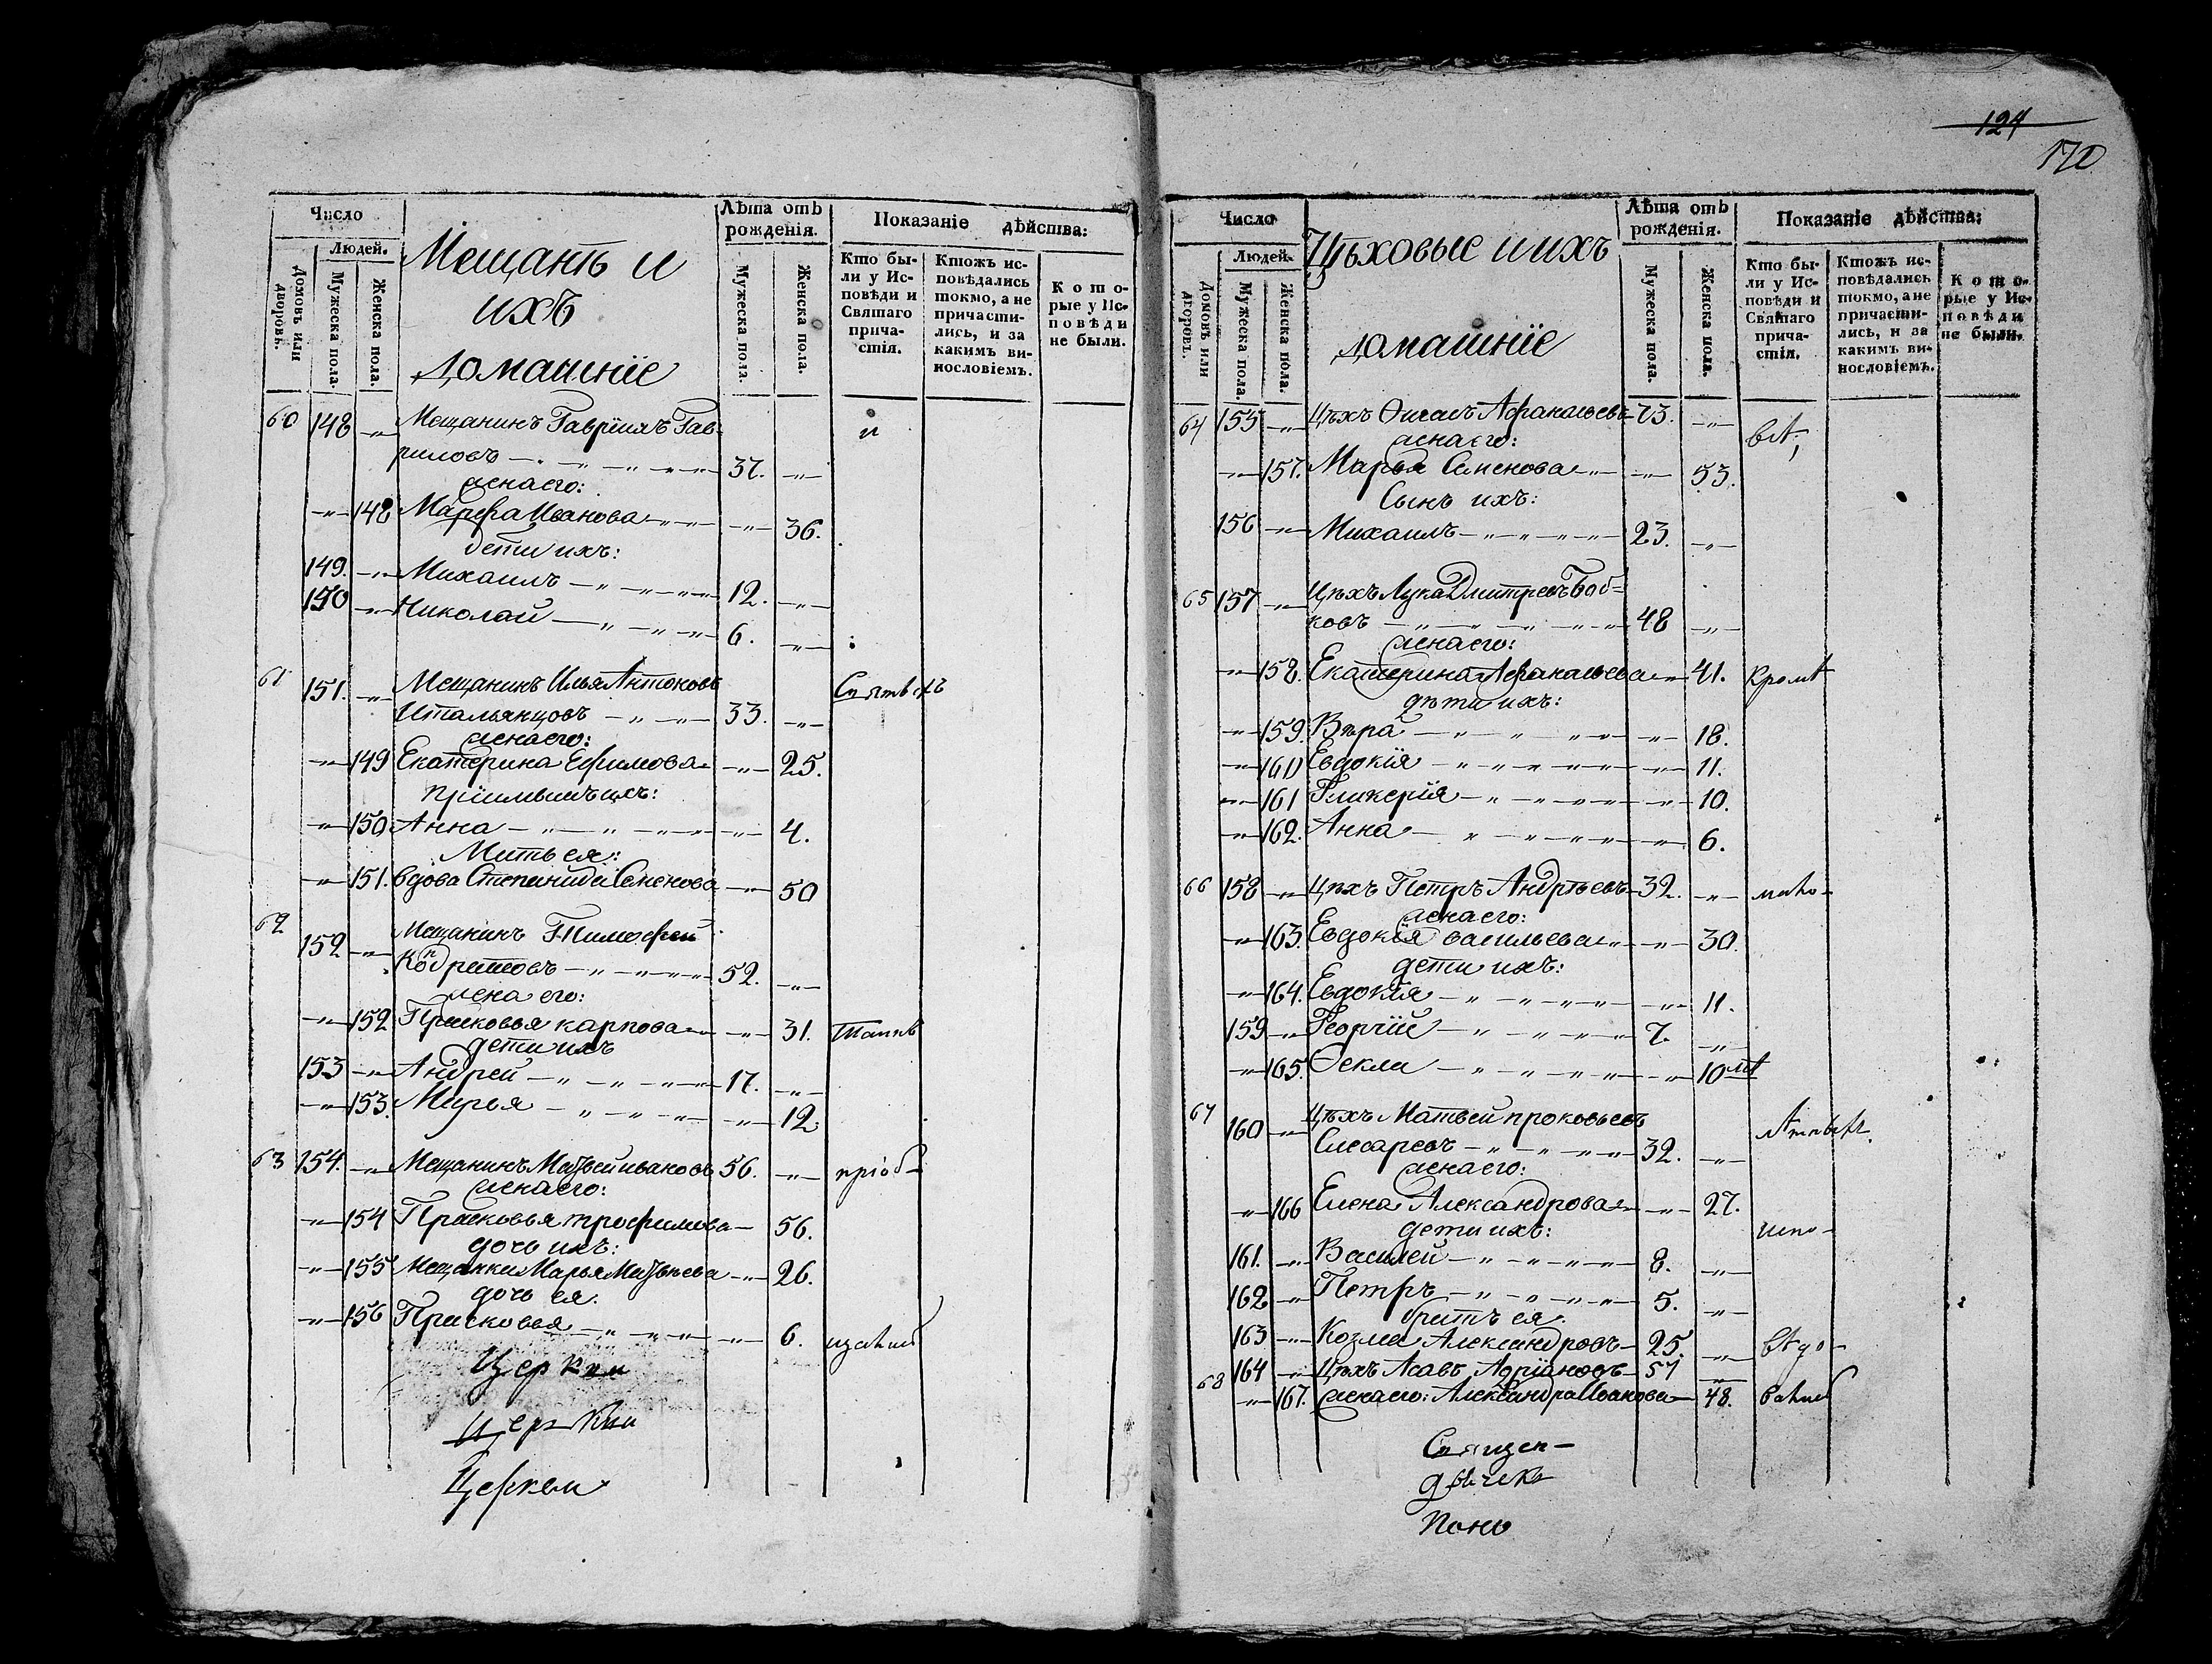 124
170
Число
Людей.
Домовъ или дворовъ.
Мужеска пола.
Женска пола.
Мещанъ и
ихъ
домашніе
Лѣта отъ рожденія.
Мужеска пола.
Женска пола.
Показаніе дѣйства:
Кто бы-
ли у Ис-
повѣди и
Святаго
прича-
стія.
Ктожъ ис-
повѣдались
токмо, а не
причасти-
лись, и за
какимъ ви-
нословіемъ.
Кото-
рые у Ис-
повѣди
не были.
60 148 Мещанинъ Гавріилъ Гав- и
риловъ 37.
жена его:
148 Марфа Иванова 36.
дети ихъ:
149. Михаилъ 12.
150 Николай 6.
61 151. Мещанинъ Илья Антоновъ
Итальянцовъ 33.
жена его:
149 Екатерина Ефимова 25.
150 Анна 4.
Мать ея:
151. вдова Степанида Семенова 50
62 152 Мещанинъ Тимофей
Кондратовъ 52.
жена его:
152 Прасковья карпова 31.
дети ихъ
153 Андрей 17.
153. Марья 12.
63 154. Мещанинъ Матвей ивановъ 56. пріоб-
жена его:
154 Прасковья трофимова 56.
дочь ихъ:
155 Мещанка Марья Матвѣева 26.
дочь ея.
156 Прасковья 6.
Церкви
Церкви
Церкви
Число
Людей.
Домовъ или дворовъ.
Мужеска пола.
Женска пола.
Цѣховые и ихъ
домашніе
Лѣта отъ рожденія.
Мужеска пола.
Женска пола.
Показаніе дѣйства:
Кто бы-
ли у Ис-
повѣди и
Святаго
прича-
стія.
Ктожъ ис-
повѣдались
токмо, а не
причасти-
лись, и за
какимъ ви-
нословіемъ.
Кото-
рые у Ис-
повѣди
не были.
64 155 Цѣхъ Афанасьевъ 73. всѣ,
жена его:
157. Марья Семенова 53.
Сынъ ихъ:
156 Михаилъ 23.
65 157 Цѣхъ Лука Дмитревъ Боб-
ковъ 48
жена его:
158. Екатерина Афанасьева 41. Кромѣ
дѣти ихъ:
159. Вѣра 18.
160 Евдокія 11.
161 Гликерія 10.
162. Анна 6.
66 158 Цѣхъ Петръ Андрѣевъ 32. мало-
жена его:
163. Евдокія васильева 30.
дети ихъ:
164. Евдокія 11.
159 Георгій 7.
165. Фекла 10 мѣ
67 160 Цѣхъ Матвей прокофьевъ
Слесаревъ 32.
жена его:
166 Елена Александрова 27.
дети ихъ: испо-
161. Василей 8.
162 Петръ 5.
братъ ея.
163 Козма Александровъ 25.
68 164 Цѣхъ Адріановъ 57
167. жена его: Александра Иванова 48.
Священ-
Пономь